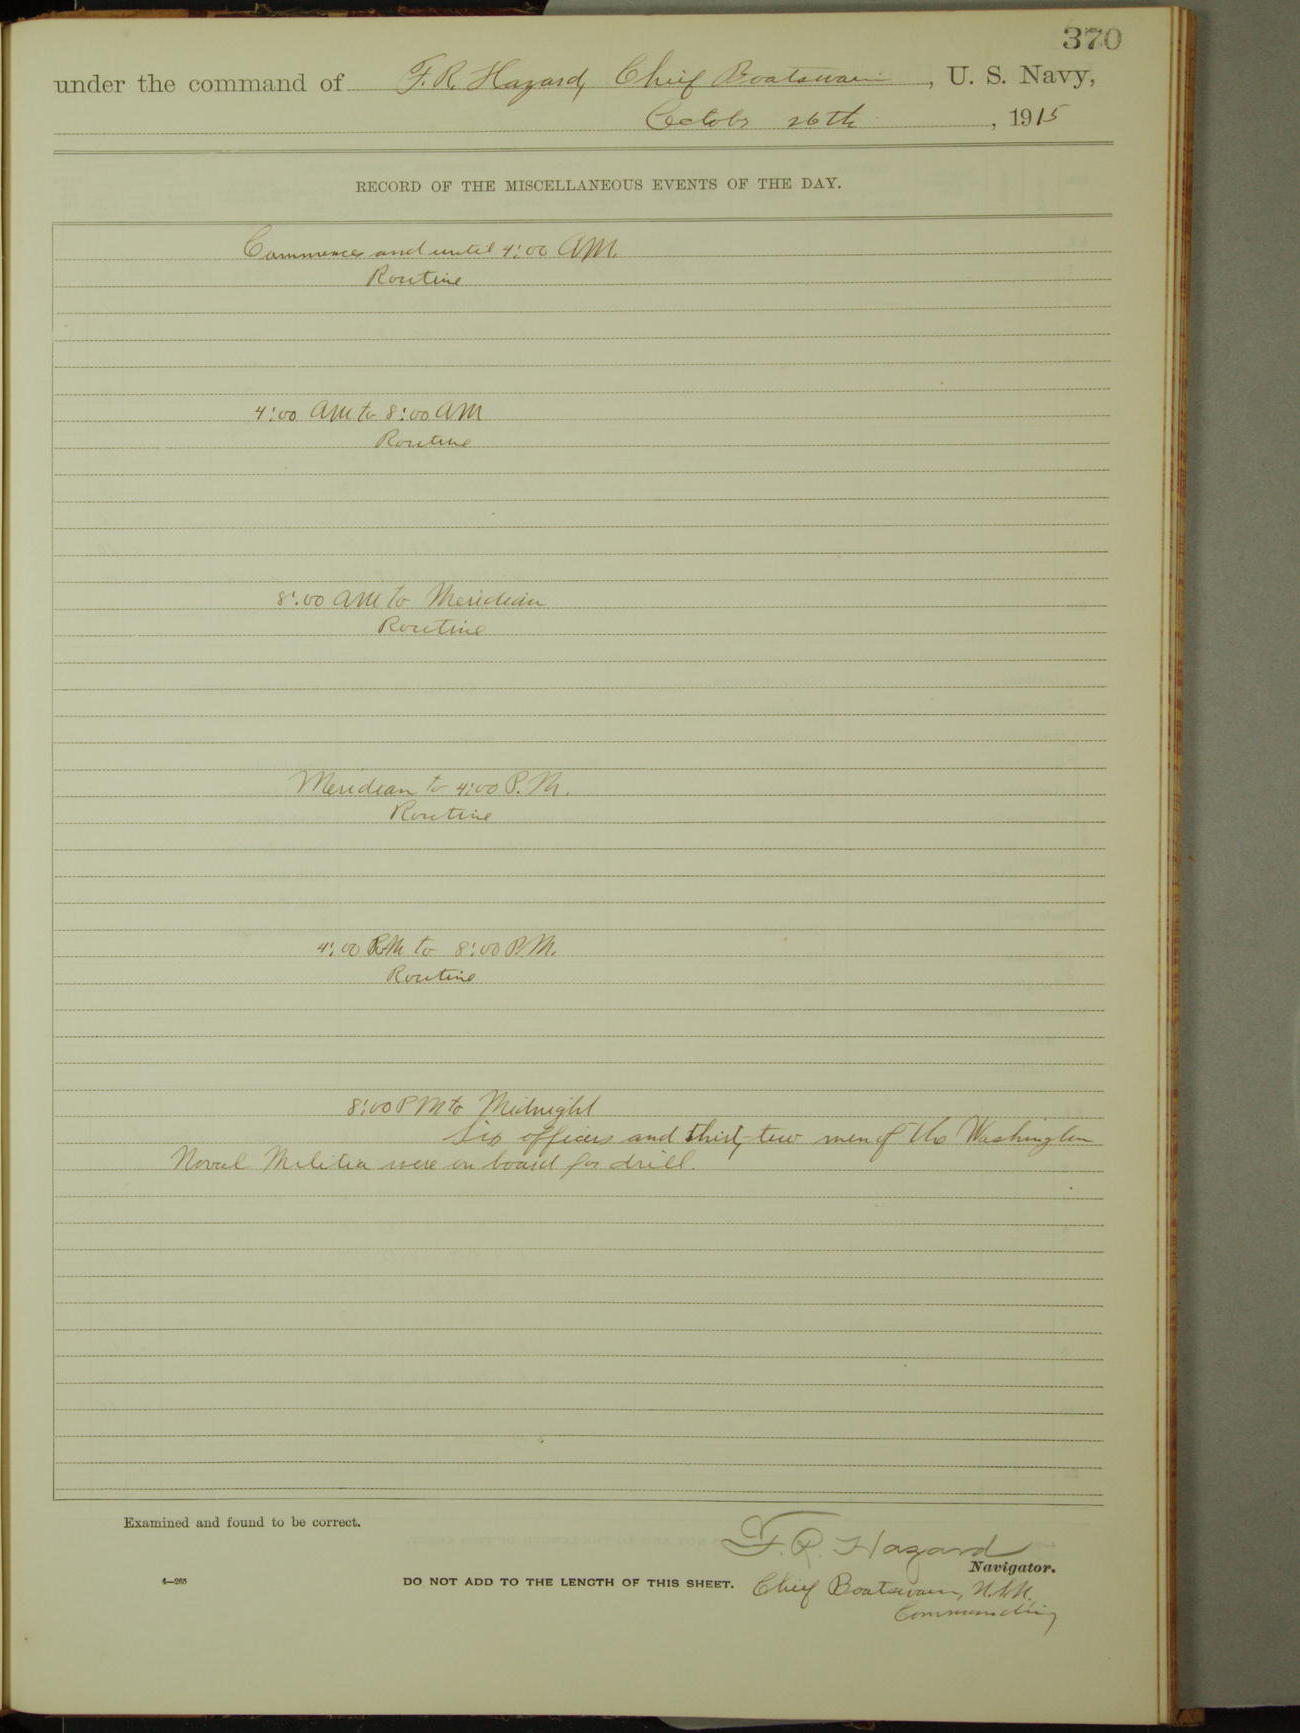 370
under the command of F. R. Hazard, Chief Boatswain, U. S. Navy,
October 26th, 1915
RECORD OF THE MISCELLANEOUS EVENTS OF THE DAY.
Commences and until 4:00 AM.
Routine
4:00 AM to 8:00 AM
Routine
8:00 AM to Meridian
Routine
Meridian to 4:00 P.M.
Routine
4:00 PM to 8:00 P.M.
Routine
8:00 PM to Midnight
Six officers and thirty-two men of the Washington
Naval Militia were on board for drill.
Examined and found to be correct.
F. R. Hazard
Navigator.
4—265
DO NOT ADD TO THE LENGTH OF THIS SHEET.
Chief Boatswain, U.S.N.
Commanding